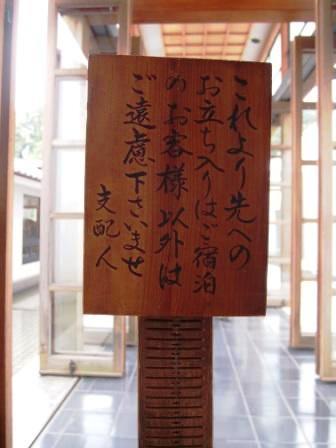 これより先への
お立ち入りはご宿泊
のお客様以外は
ご遠慮下さいませ
支配人